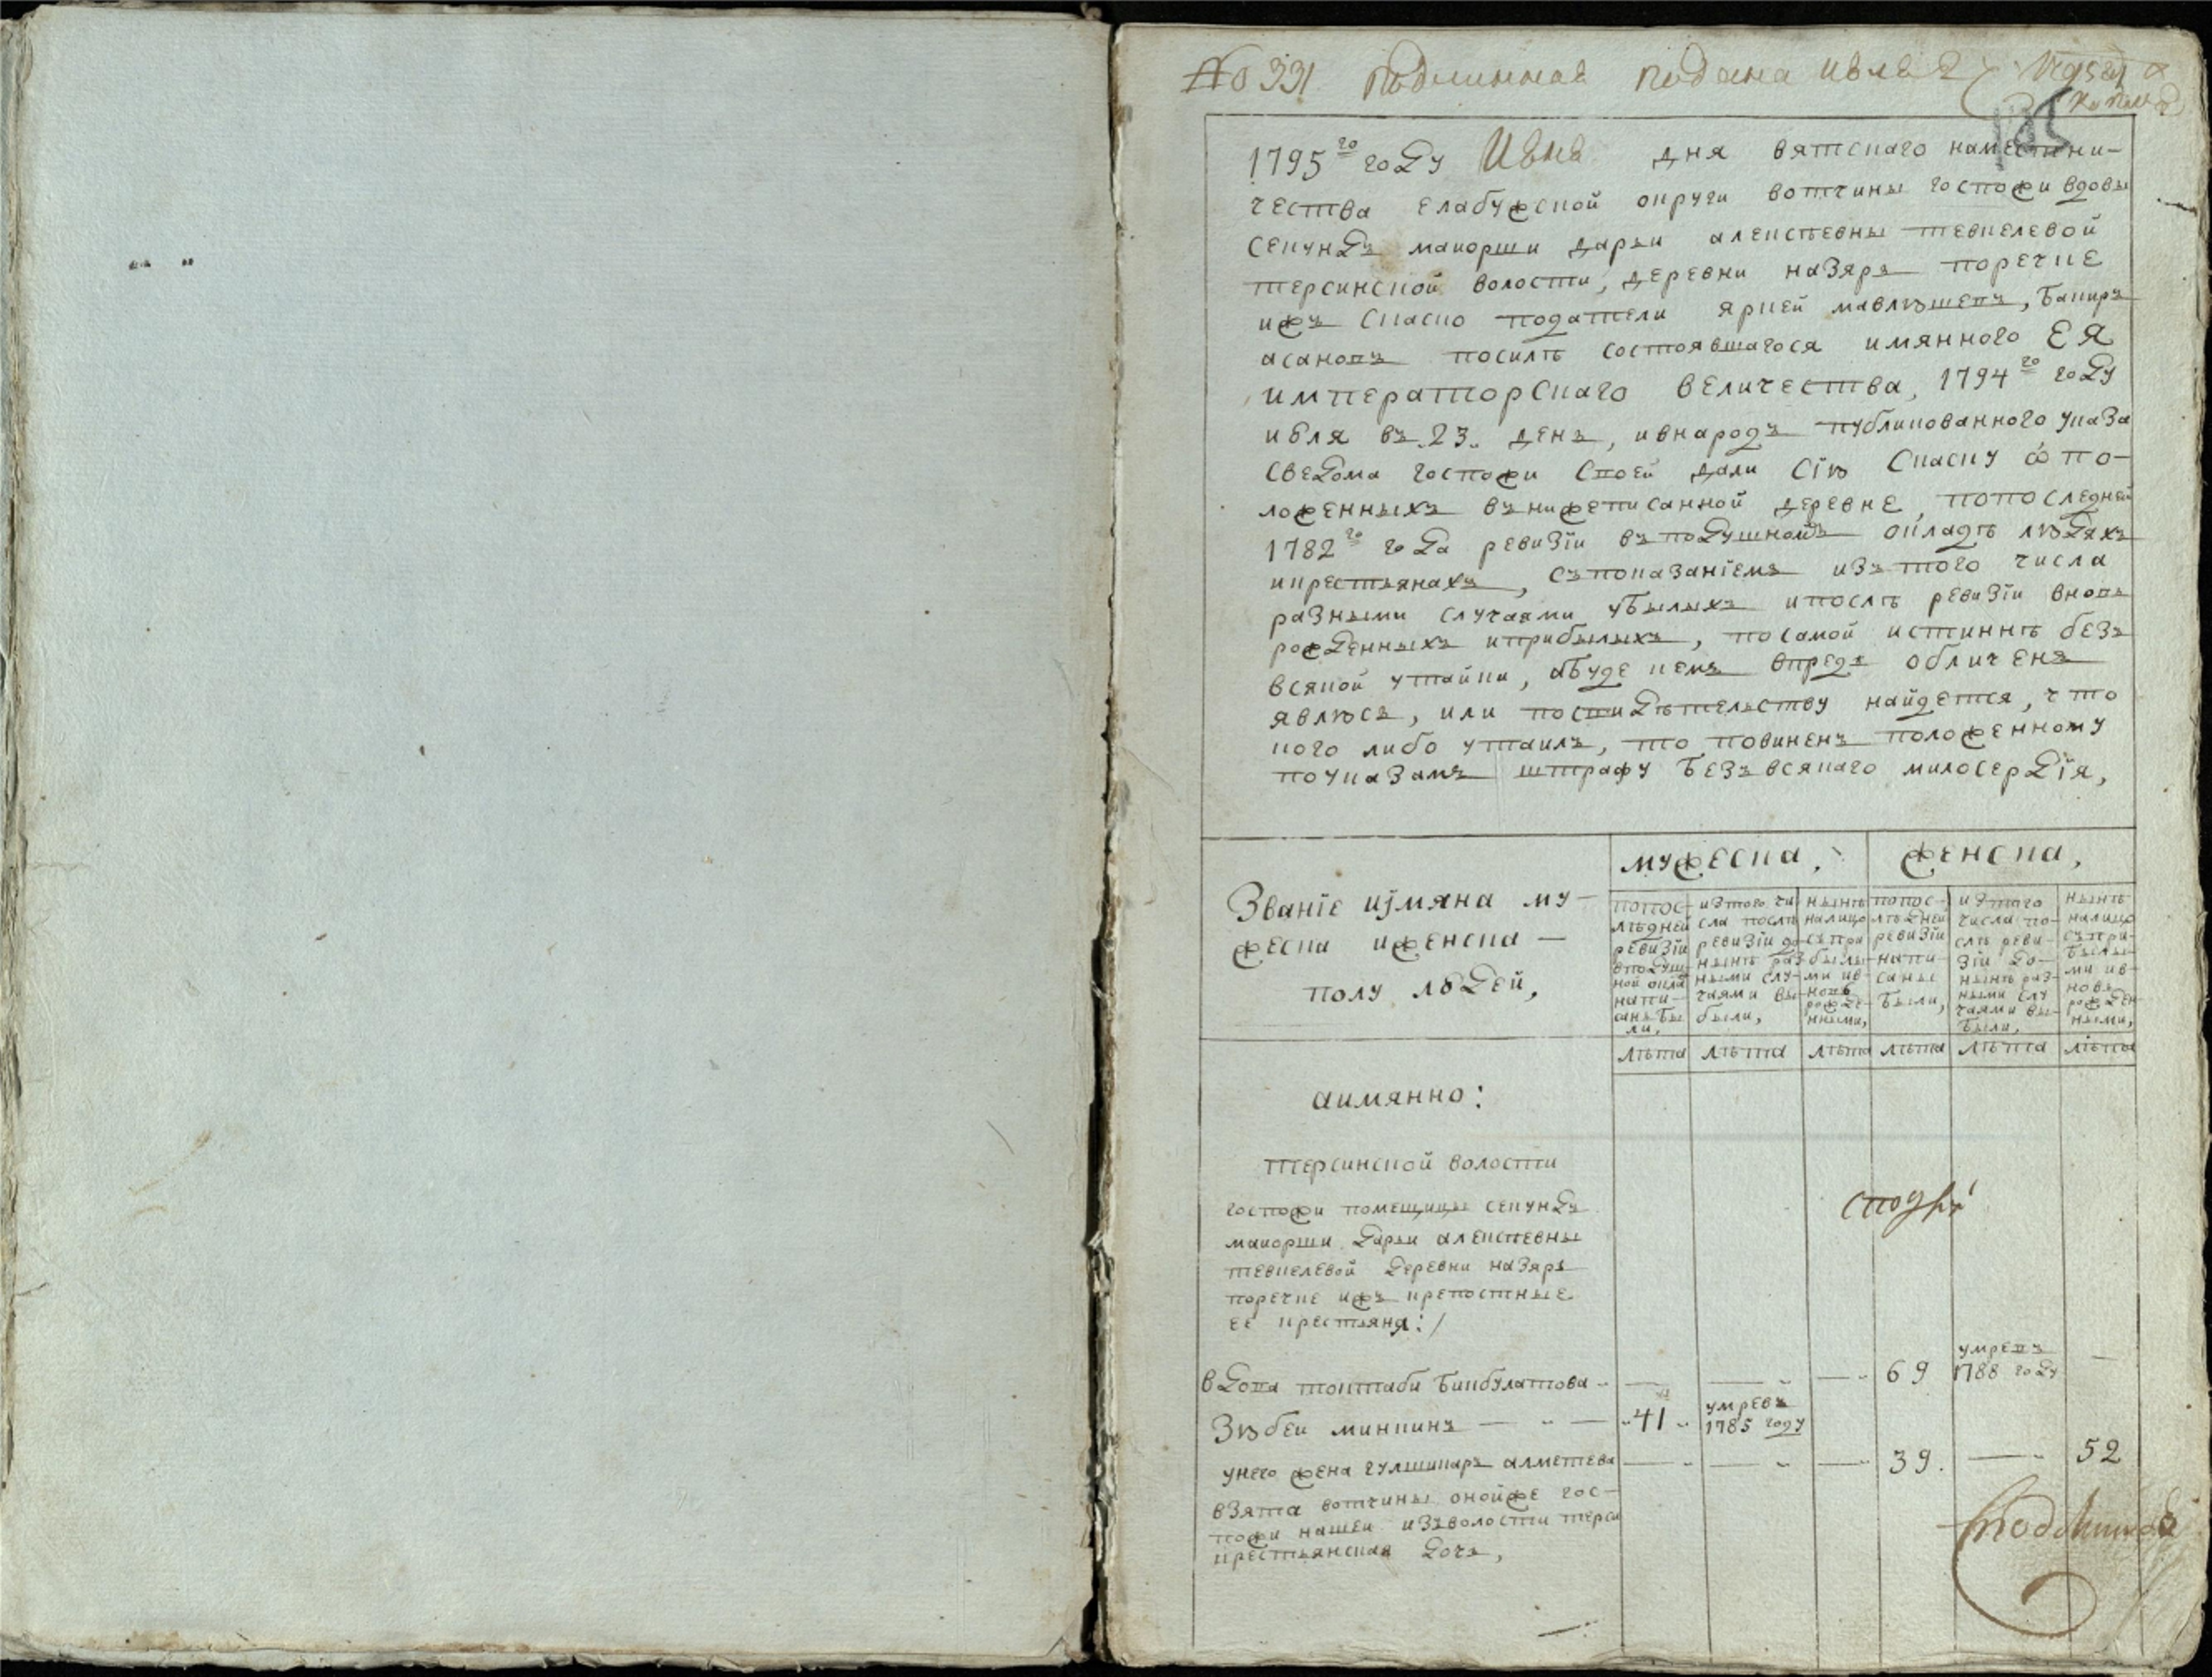 № 331 Подлинная подана Июля 2
1795го году Июня дня вятскаго наместни-
чества елабужской округи вотчины госпожи вдовы
секундъ маиорши дарьи алексѣевны тевкелевой
терсинской волости, деревни назяръ поречке
ижъ сказко податели яркей мавлюшевъ, бакиръ
асановъ посилѣ состоявшагося имянного ЕЯ
императорскаго величества, 1794го году
июля въ 23. день, ивнародъ публикованного указа
сведома госпожи своей дали сiю сказку ѡ по-
ложенныхъ внижеписанной деревне, попоследней
1782го года ревизiи въподушномъ окладѣ людяхъ
икрестьянахъ, съпоказанiемъ изътого числа
разными случаями убылыхъ ипослѣ ревизiи вновь
рожденныхъ иприбылыхъ, посамой истиннѣ безъ
всякой утайки, абуде кемъ впредь обличенъ
явлюсь, или посвидѣтельству найдется, что
кого либо утаилъ, то повиненъ положенному
поуказамъ штрафу безъвсякаго милосердiя,
мужеска, женска,
Званiе иjмяна му-
жески иженска -
полу людей,
попос-
лѣдней
ревизiи
вподуш-
ной окла
напи-
саны бы
ли,
изтого чи
сла послѣ
ревизiи до
нынѣ раз
ными слу-
чаями вы-
были,
нынѣ
налицо
съпри
былы-
ми ив-
новь
рожде-
нными,
попос-
лѣдней
ревизiи
напи-
саны
были,
изтого
числа по-
слѣ реви-
зiи до-
нынѣ раз-
ными слу
чаями вы-
были,
нынѣ
налицо
съпри-
былы-
ми ив-
новь
рожден-
ными,
лѣта лѣта лѣта лѣта лѣта лѣта
аимянно:
терсинской волости
госпожи помещицы секундъ
маиорши дарьи алексѣевны
тевкелевой деревни назяръ
поречке ижъ крепостные
ее крестьяня:/
вдова токтаби бикбулатова - — — — 69 умревъ 1788 году —
Зюбеи минкинъ — 41 умревъ 1785 году
унего жена гулшикаръ алметева — — — 39. — 52
взята вотчины онойже гос-
пожи нашеи изъволости терси
крестьянская дочь,